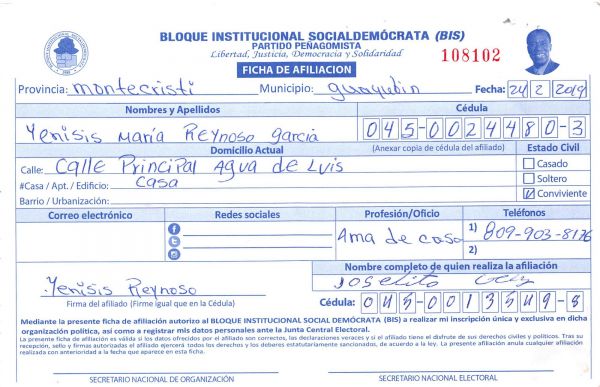 BLOQUE INSTITUCIONAL SOCIALDEMÓCRATA (BIS)
PARTIDO PEÑAGOMISTA
Libertad, Justicia, Democracia y Solidaridad
108102
FICHA DE AFILIACION
Provincia: montecristi Municipio: guayubin Fecha: 24/2/2019
Nombres y Apellidos Cédula
Yenisis María Reynoso garcia 045-0024480-3
Domicilio Actual (Anexar copia de cédula del afiliado) Estado Civil
Calle: Calle Principal Agua de Luis Casado
#Casa / Apt. / Edificio: Casa Soltero
Barrio / Urbanización: Conviviente
Correo electrónico Redes sociales Profesión/Oficio Teléfonos
Ama de casa 1) 809-903-8176
2)
Nombre completo de quien realiza la afiliación
Yenisis Reynoso Joselito
Firma del afiliado (Firme igual que en la Cédula) Cédula: 045-0013549-8
Mediante la presente ficha de afiliación autorizo al BLOQUE INSTITUCIONAL SOCIAL DEMÓCRATA (BIS) a realizar mi inscripción única y exclusiva en dicha
organización política, así como a registrar mis datos personales ante la Junta Central Electoral.
La presente ficha de afiliación es válida si los datos ofrecidos por el afiliado son correctos, las declaraciones veraces y si el afiliado tiene el disfrute de sus derechos civiles y políticos. Tras su
recepción, sello y firmas autorizadas el afiliado ejercerá todos los derechos y los deberes estatutariamente sancionados, de acuerdo a la ley. La presente afiliación anula cualquier afiliación
realizada con anterioridad a la fecha que aparece en esta ficha.
SECRETARIO NACIONAL DE ORGANIZACIÓN SECRETARIO NACIONAL ELECTORAL